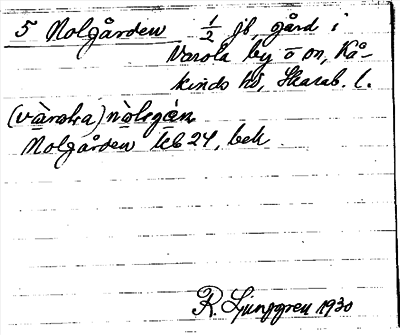 5 Nolgården ½ jb, gård i
Varola by o on, Kå-
kinds hd, Skarab. l.
(vàrola) nòlgá̇n
Nolgården kb 24, beb.
R. Ljunggren 1930